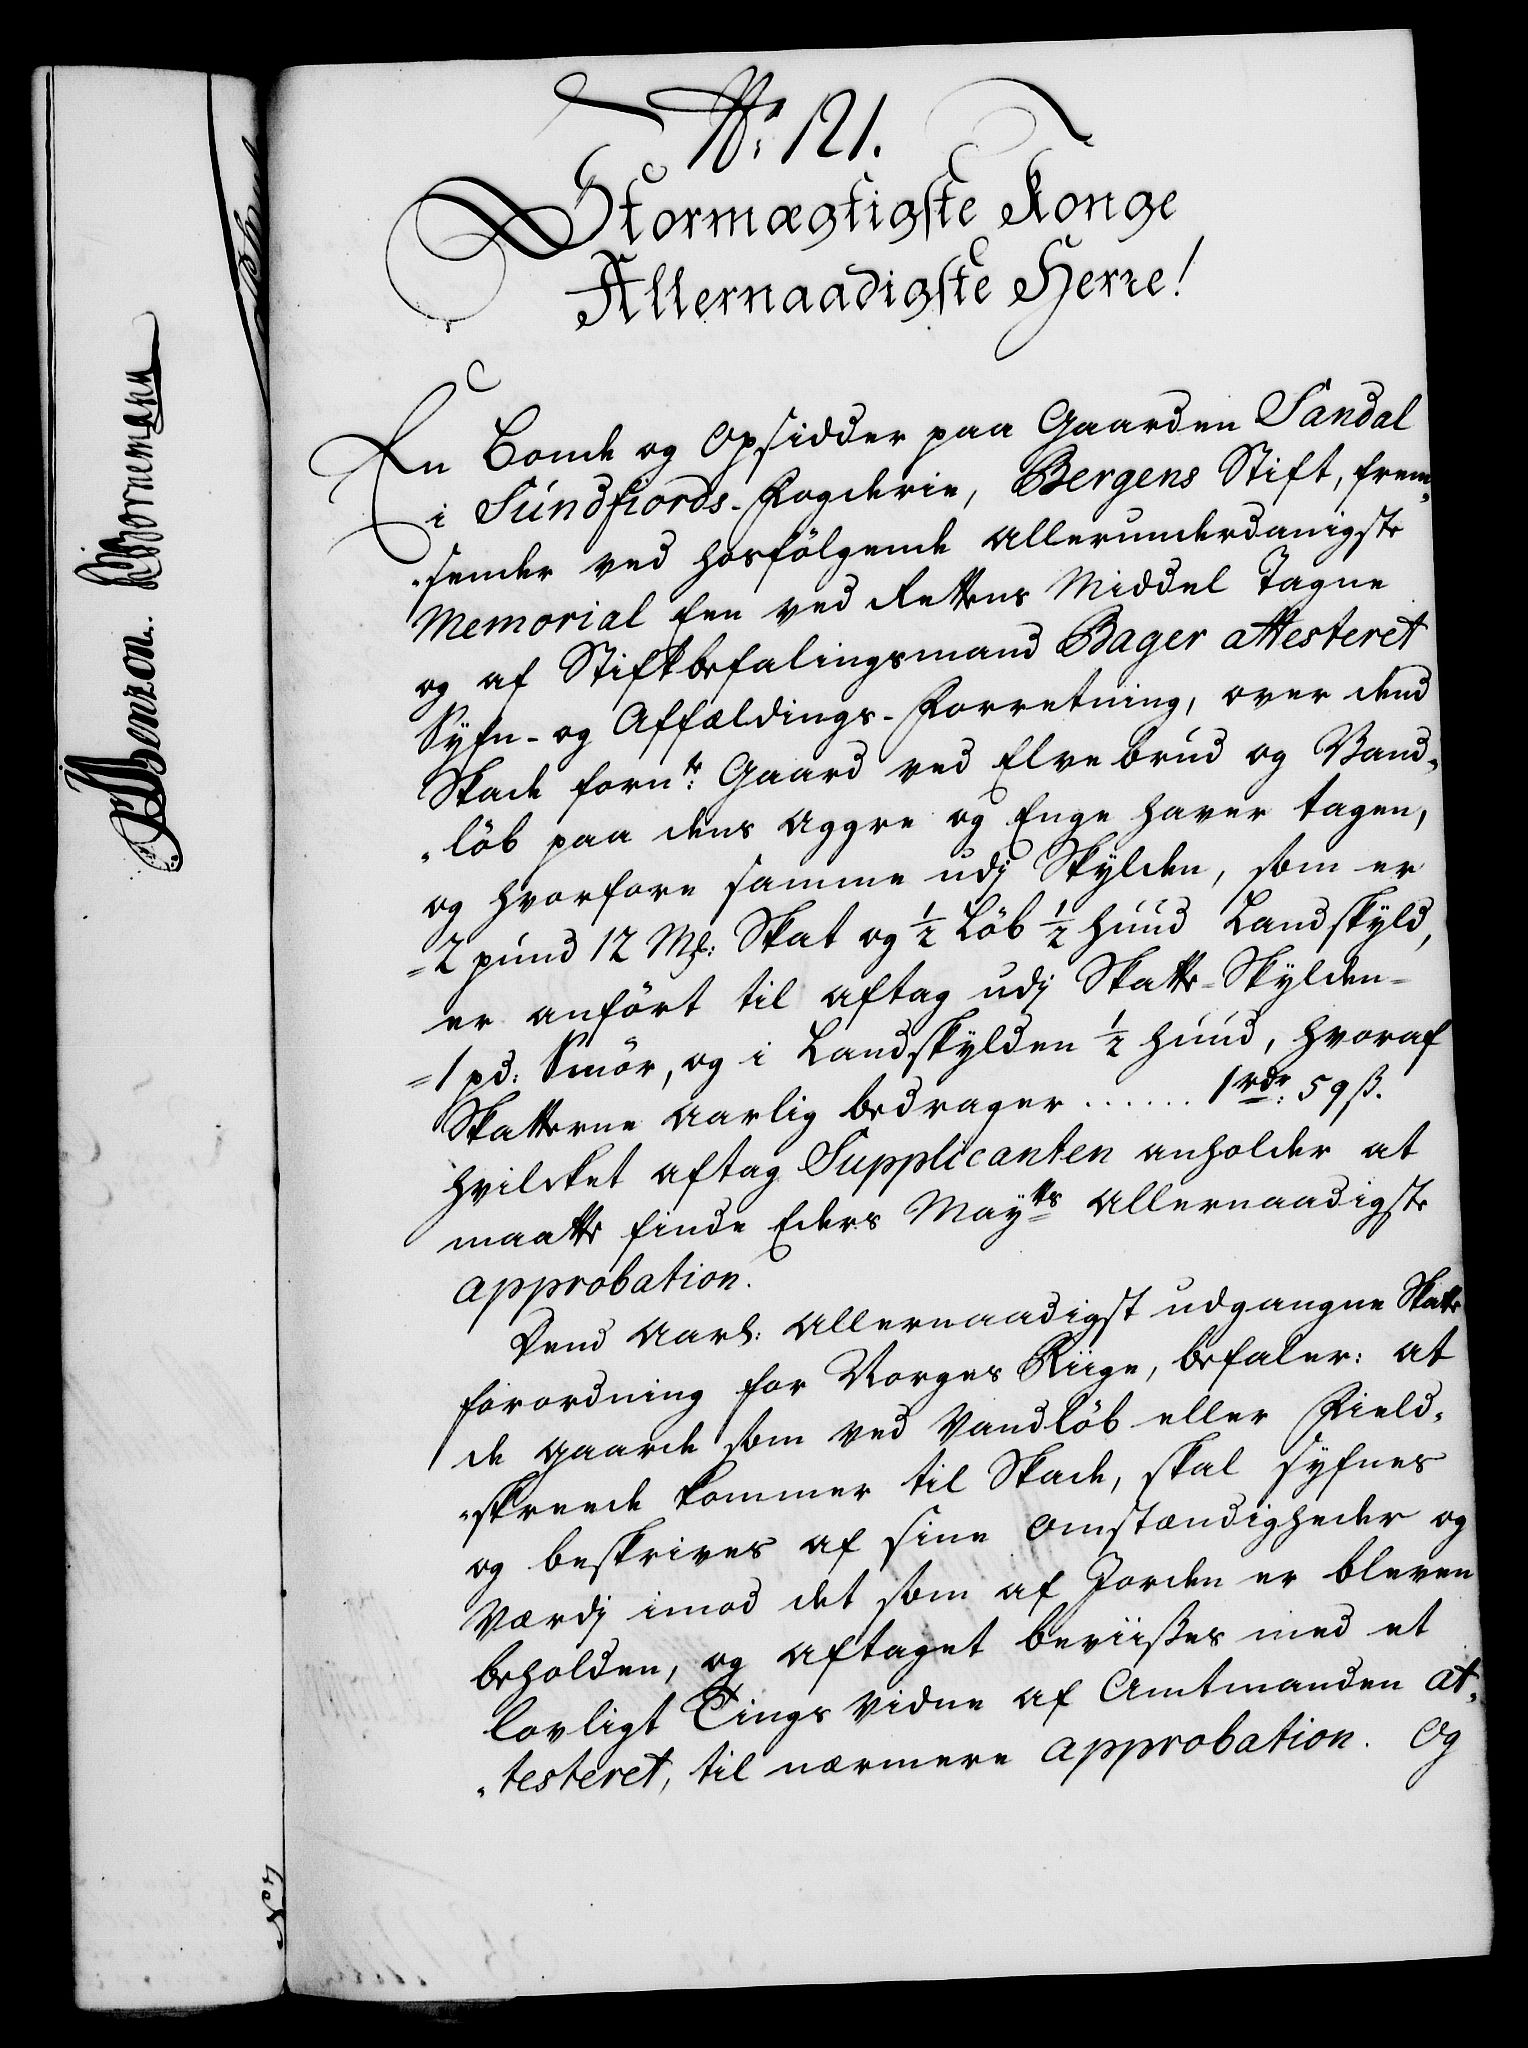 No: 121.
Stormægtigste Konge
Allernaadigste Herre!
En Bonde og Opsidder paa Gaarden Sandal
i Sundfiords-Fogderie, Bergens Stift, frem„
„sender ved hosfölgende allerunderdanigste
Memorial Een ved Rettens Middel Tagne
og af Stiftbefalingsmand Bager attesteret
Syfn- og Affældings-Forretning, over dend
Skade fornte: Gaard ved Elvebrud og Vand„
„löb paa dens Aggre og Enge haver tagen,
og hvorfore samme udj Skylden, som er
=2 pund 12 Mk: Skat og ½ Löb ½ huud Landskyld,
er anfört til aftag udj Skatte-Skylden=
=1 pd: Smör, og i Landskylden ½ huud, hvoraf
Skatterne aarlig bedrager ...... 1 rdr: 59 ß.
hvilcket aftag Supplicanten anholder at
maatte finde Eders Maytts allernaadigste
approbation.
Dend aarl: allernaadigst udgangne Skatte
forordning for Norges Riige, befaler: at
de gaarde som ved Vandlöb eller Field„
„skreede kommer til Skade, skal syfnes
og beskrives af sine omstændigheder og
Værdj imod det som af Jorden er bleven
beholden, og aftaget beviißes med et
lovligt Tings vidne af Amtmanden at„
„testeret, til nærmere approbation. Og
Bornemann
Benzon